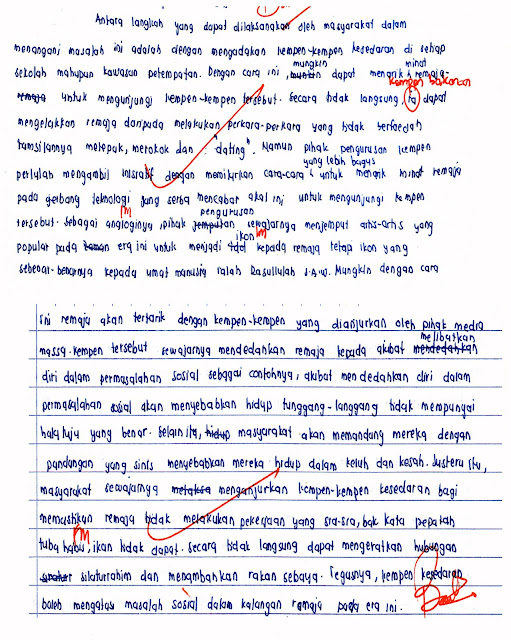 Antara langkah yang dapat dilaksanakan oleh masyarakat dalam
menangani masalah ini adalah dengan mengadakan kempen-kempen kesedaran di setiap
mungkin minat
sekolah mahupun kawasan petempatan. Dengan cara ini, dapat menarik remaja-
kempen
remaja untuk mengunjungi kempen-kempen tersebut. Secara tidak langsung, ia dapat
mengelakkan remaja daripada melakukan perkara-perkara yang tidak berfaedah
tamsilannya melepak, merokok dan "dating". Namun pihak pengurusan kempen
yang lebih bagus
perlulah mengambil inisiatif dengan memikirkan cara-cara untuk menarik minat remaja
pada gerbang teknologi yang serba mencabar akal ini untuk mengunjungi kempen
pengurusan
tersebut. Sebagai analoginya, pihak jemputan sewajarnya menjemput artis-artis yang
ikon
popular pada zaman era ini untuk menjadi idol kepada remaja tetapi ikon yang
sebenar-benarnya kepada umat manusia ialah Rasulullah S.A.W. Mungkin dengan cara
ini remaja akan tertarik dengan kempen-kempen yang dianjurkan oleh pihak media
melibatkan
massa. Kempen tersebut sewajarnya mendedahkan remaja kepada akibat mendedahkan
diri dalam permasalahan sosial sebagai contohnya, akibat mendedahkan diri dalam
permasalahan sosial akan menyebabkan hidup tunggang-langgang tidak mempunyai
halatuju yang benar. Selain itu, hidup masyarakat akan memandang mereka dengan
pandangan yang sinis menyebabkan mereka hidup dalam keluh dan kesah. Justeru itu,
masyarakat sewajarnya menganjurkan kempen-kempen kesedaran bagi
memastikan remaja tidak melakukan pekerjaan yang sia-sia, bak kata pepatah
tuba habis, ikan tidak dapat. Secara tidak langsung dapat mengeratkan hubungan
silaturahim dan menambahkan rakan sebaya. Tegusnya, kempen kesedaran
boleh mengatasi masalah sosial dalam kalangan remaja pada era ini.